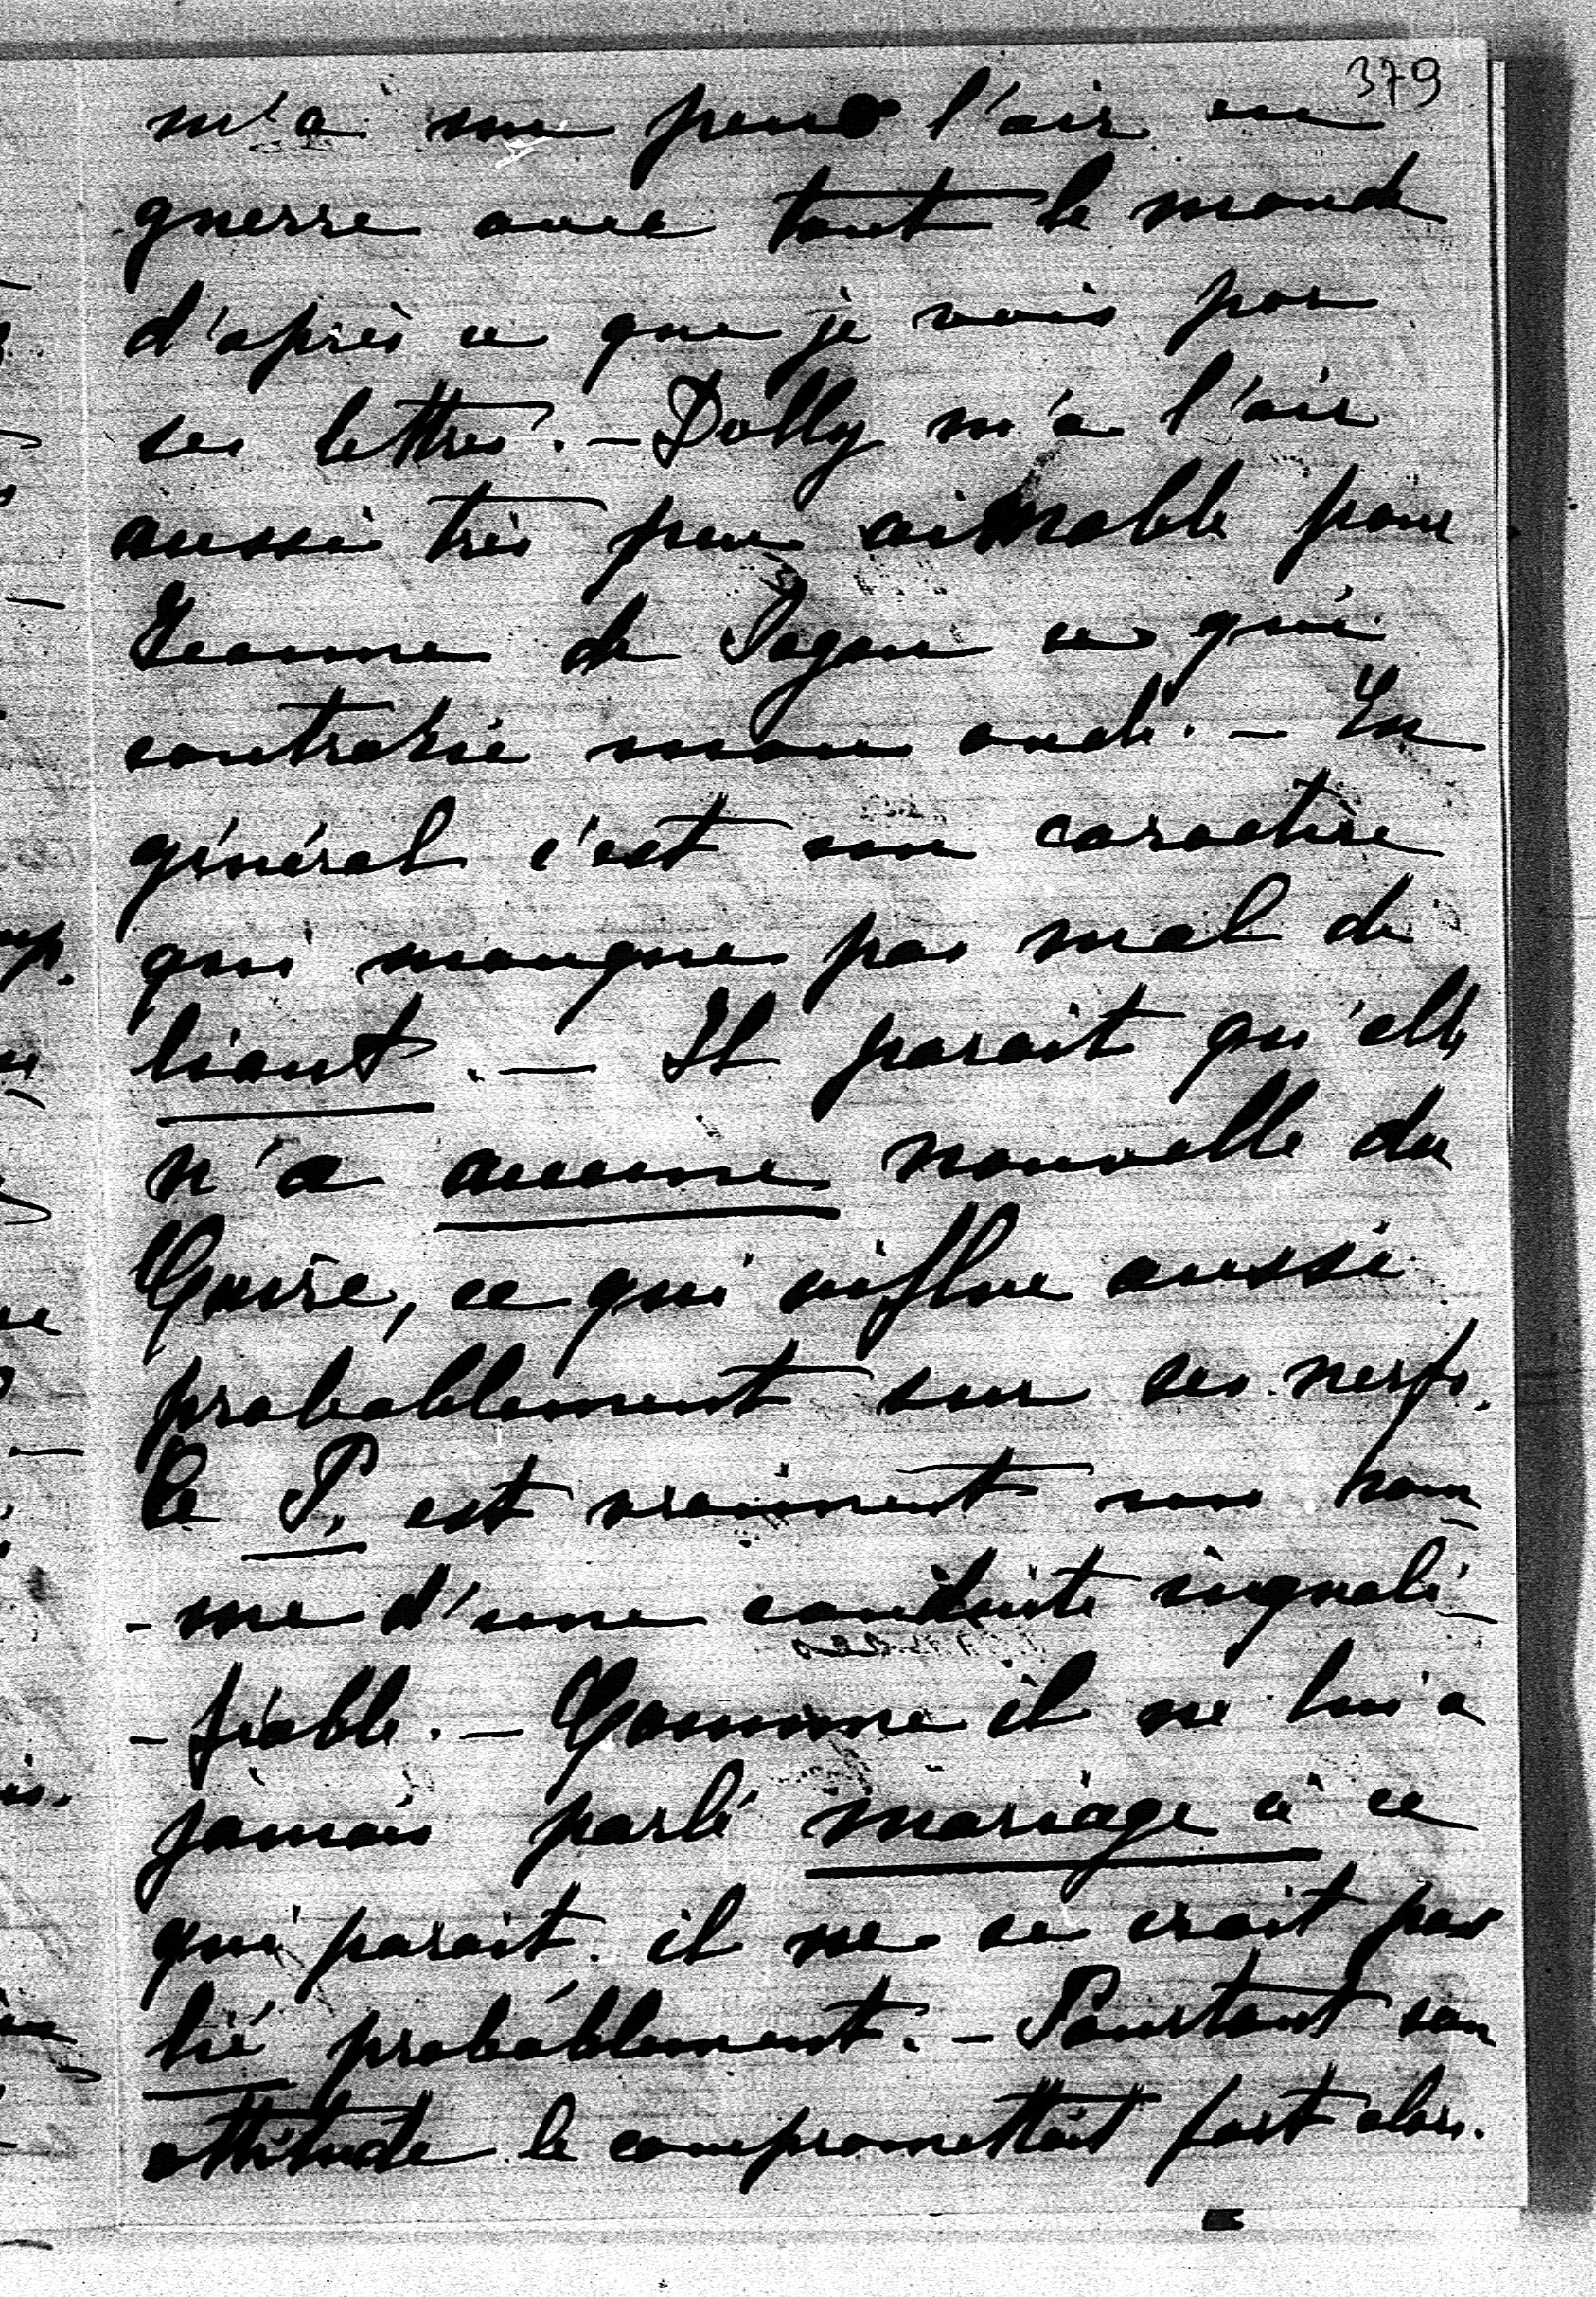 379
m'a un peu l'air en
guerre avec tout le monde
d'après ce que je vois par
ses lettres. – Dolly m'a l'air
aussi très peu aimable pour
Jeanne de Sagan ce qui
contrarie mon oncle. – En
général c'est son caractère
qui manque pas mal de
liant. – Il parait qu'elle
n'a aucune nouvelle du
Caire, ce qui influe aussi
probablement sur ses nerfs.
Ce P. est vraiment un hom-
-me d'une conduite inquali-
-fiable. – Comme il ne lui a
jamais parlé mariage à ce
qui parait il ne se croit pas
lié probablement. – Pourtant son
attitude le compromettait fort alors.